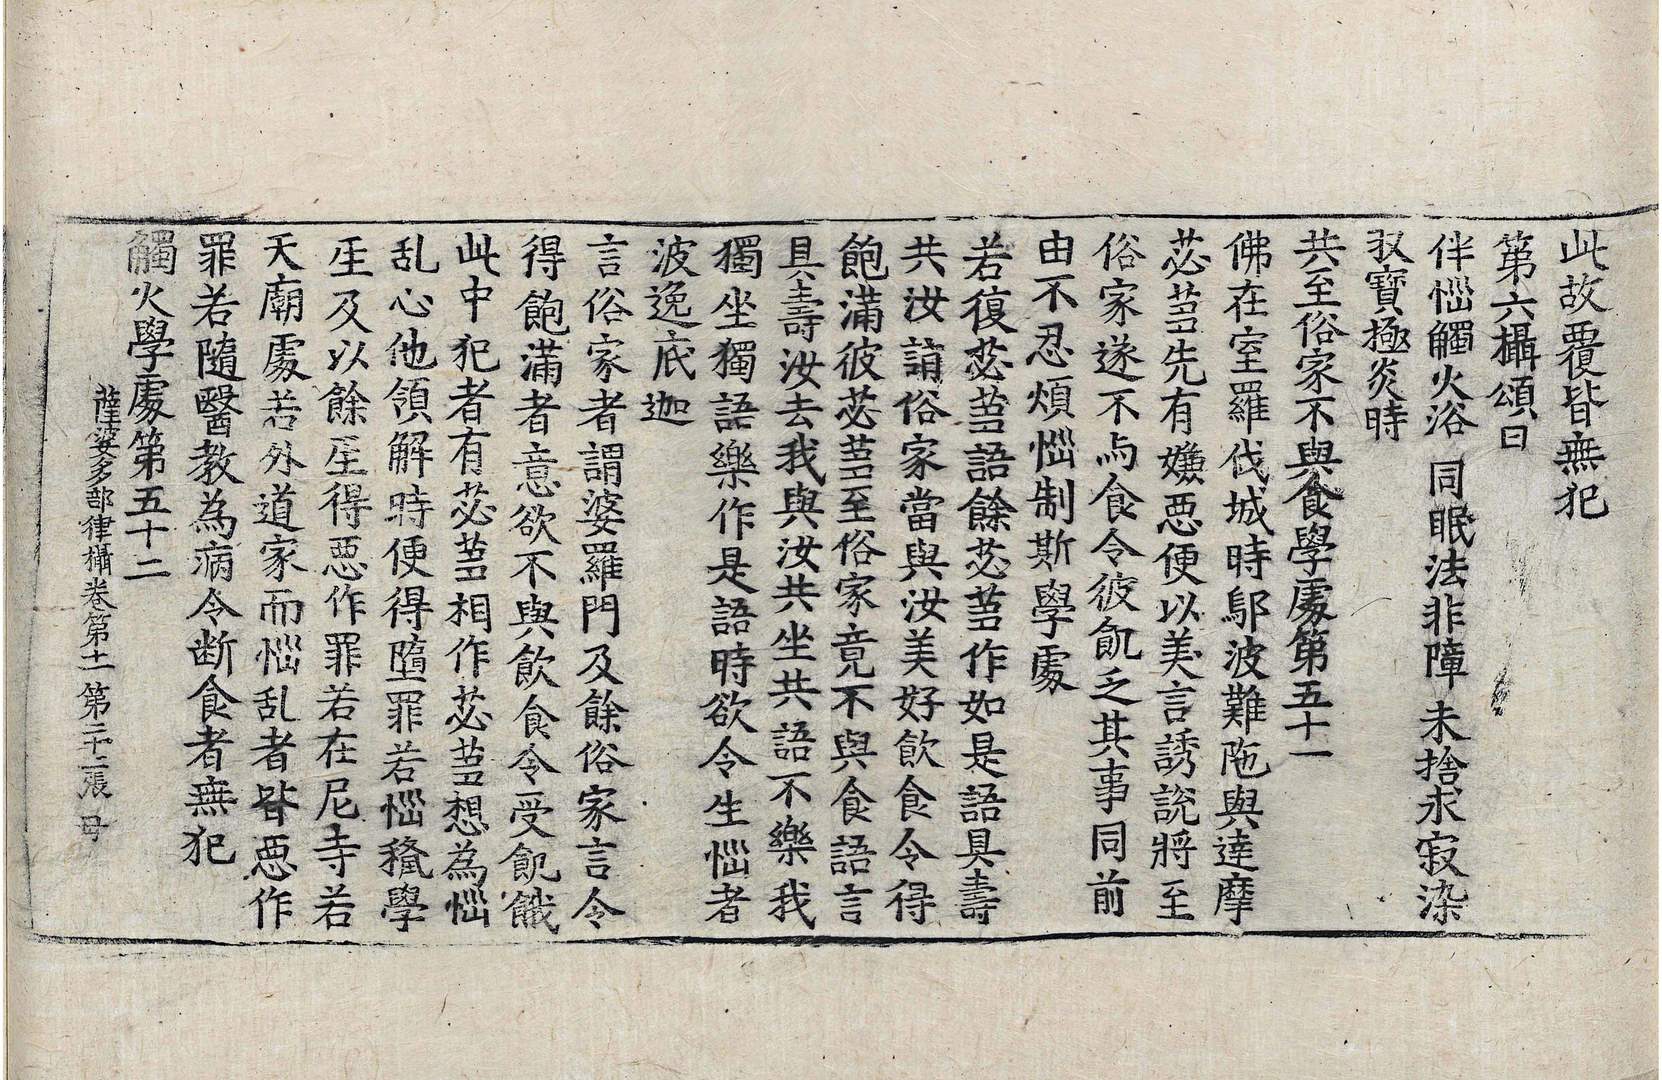 此故覆皆無犯
第六攝頌曰
伴惱觸火浴 同眠法非障 未捨求寂染
収寶極炎時
共至俗家不與食學處第五十一
佛在室羅伐城時鄔波難陁與達摩
苾芻先有嫌惡便以美言誘說將至
俗家遂不与食令彼飢乏其事同前
由不忍煩惱制斯學處
若復苾芻語餘苾芻作如是語具壽
共汝詣俗家當與汝美好飲食令得
飽滿彼苾芻至俗家竟不與食語言
具壽汝去我與汝共坐共語不樂我
獨坐獨語樂作是語時欲令生惱者
波逸底迦
言俗家者謂婆羅門及餘俗家言令
得飽滿者意欲不與飲食令受飢餓
此中犯者有苾芻相作苾芻想為惱
乱心他領解時便得墮罪若惱授學
𤯔及以餘𤯔得惡作罪若在尼寺若
天廟處若外道家而惱乱者皆惡作
罪若隨醫教為病令断食者無犯
觸火學處第五十二
薩婆多部律攝卷第十一 第二十二張 母